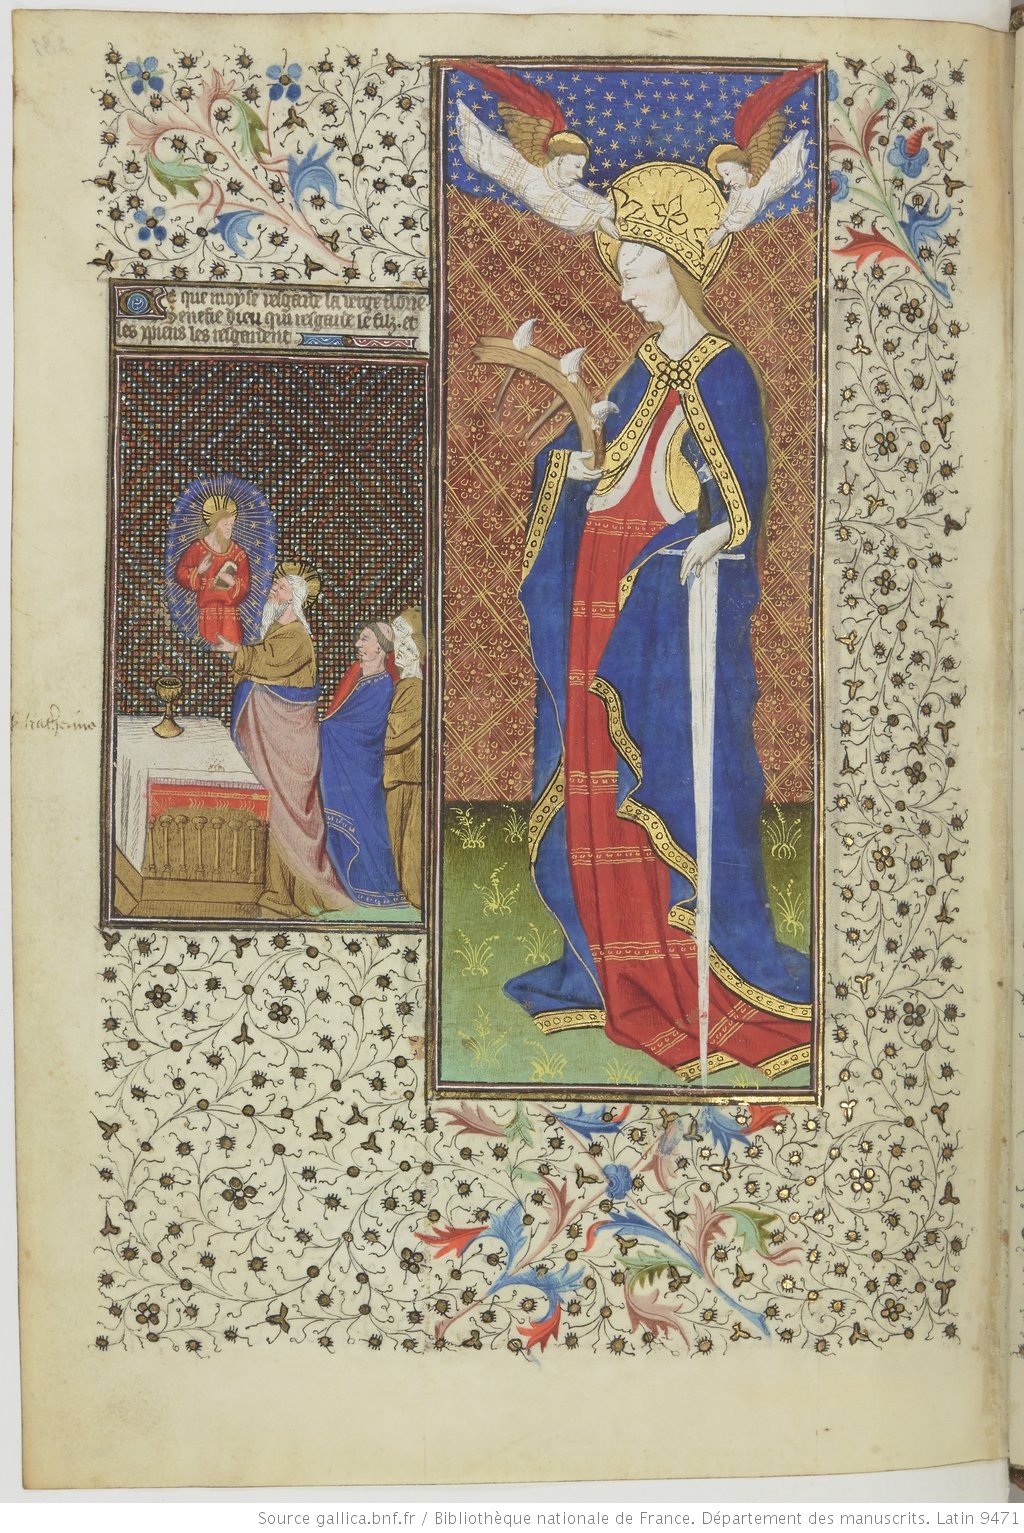 Ce que moyse resgarde la verge florie
Senefie dieu qui resgarde le filz. et
les xpiens les resgardent
S katherine
Source gallica.bnf.fr / Bibliothèque nationale de France. Département des manuscrits. Latin 9471